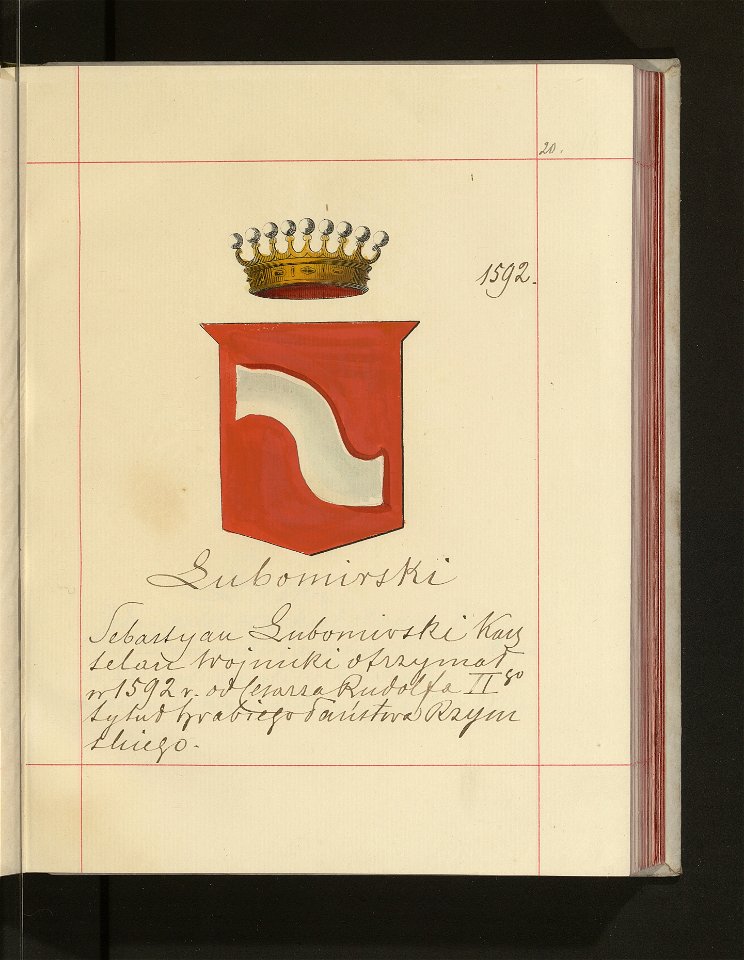 20.
1592.
Lubomirski
Sebastyan Lubomirski Kasz
telan Wojnicki otrzymał
w 1592 r. od Cesarza Rudolfa II go
tytuł hrabiego Państwa Rzym
skiego.